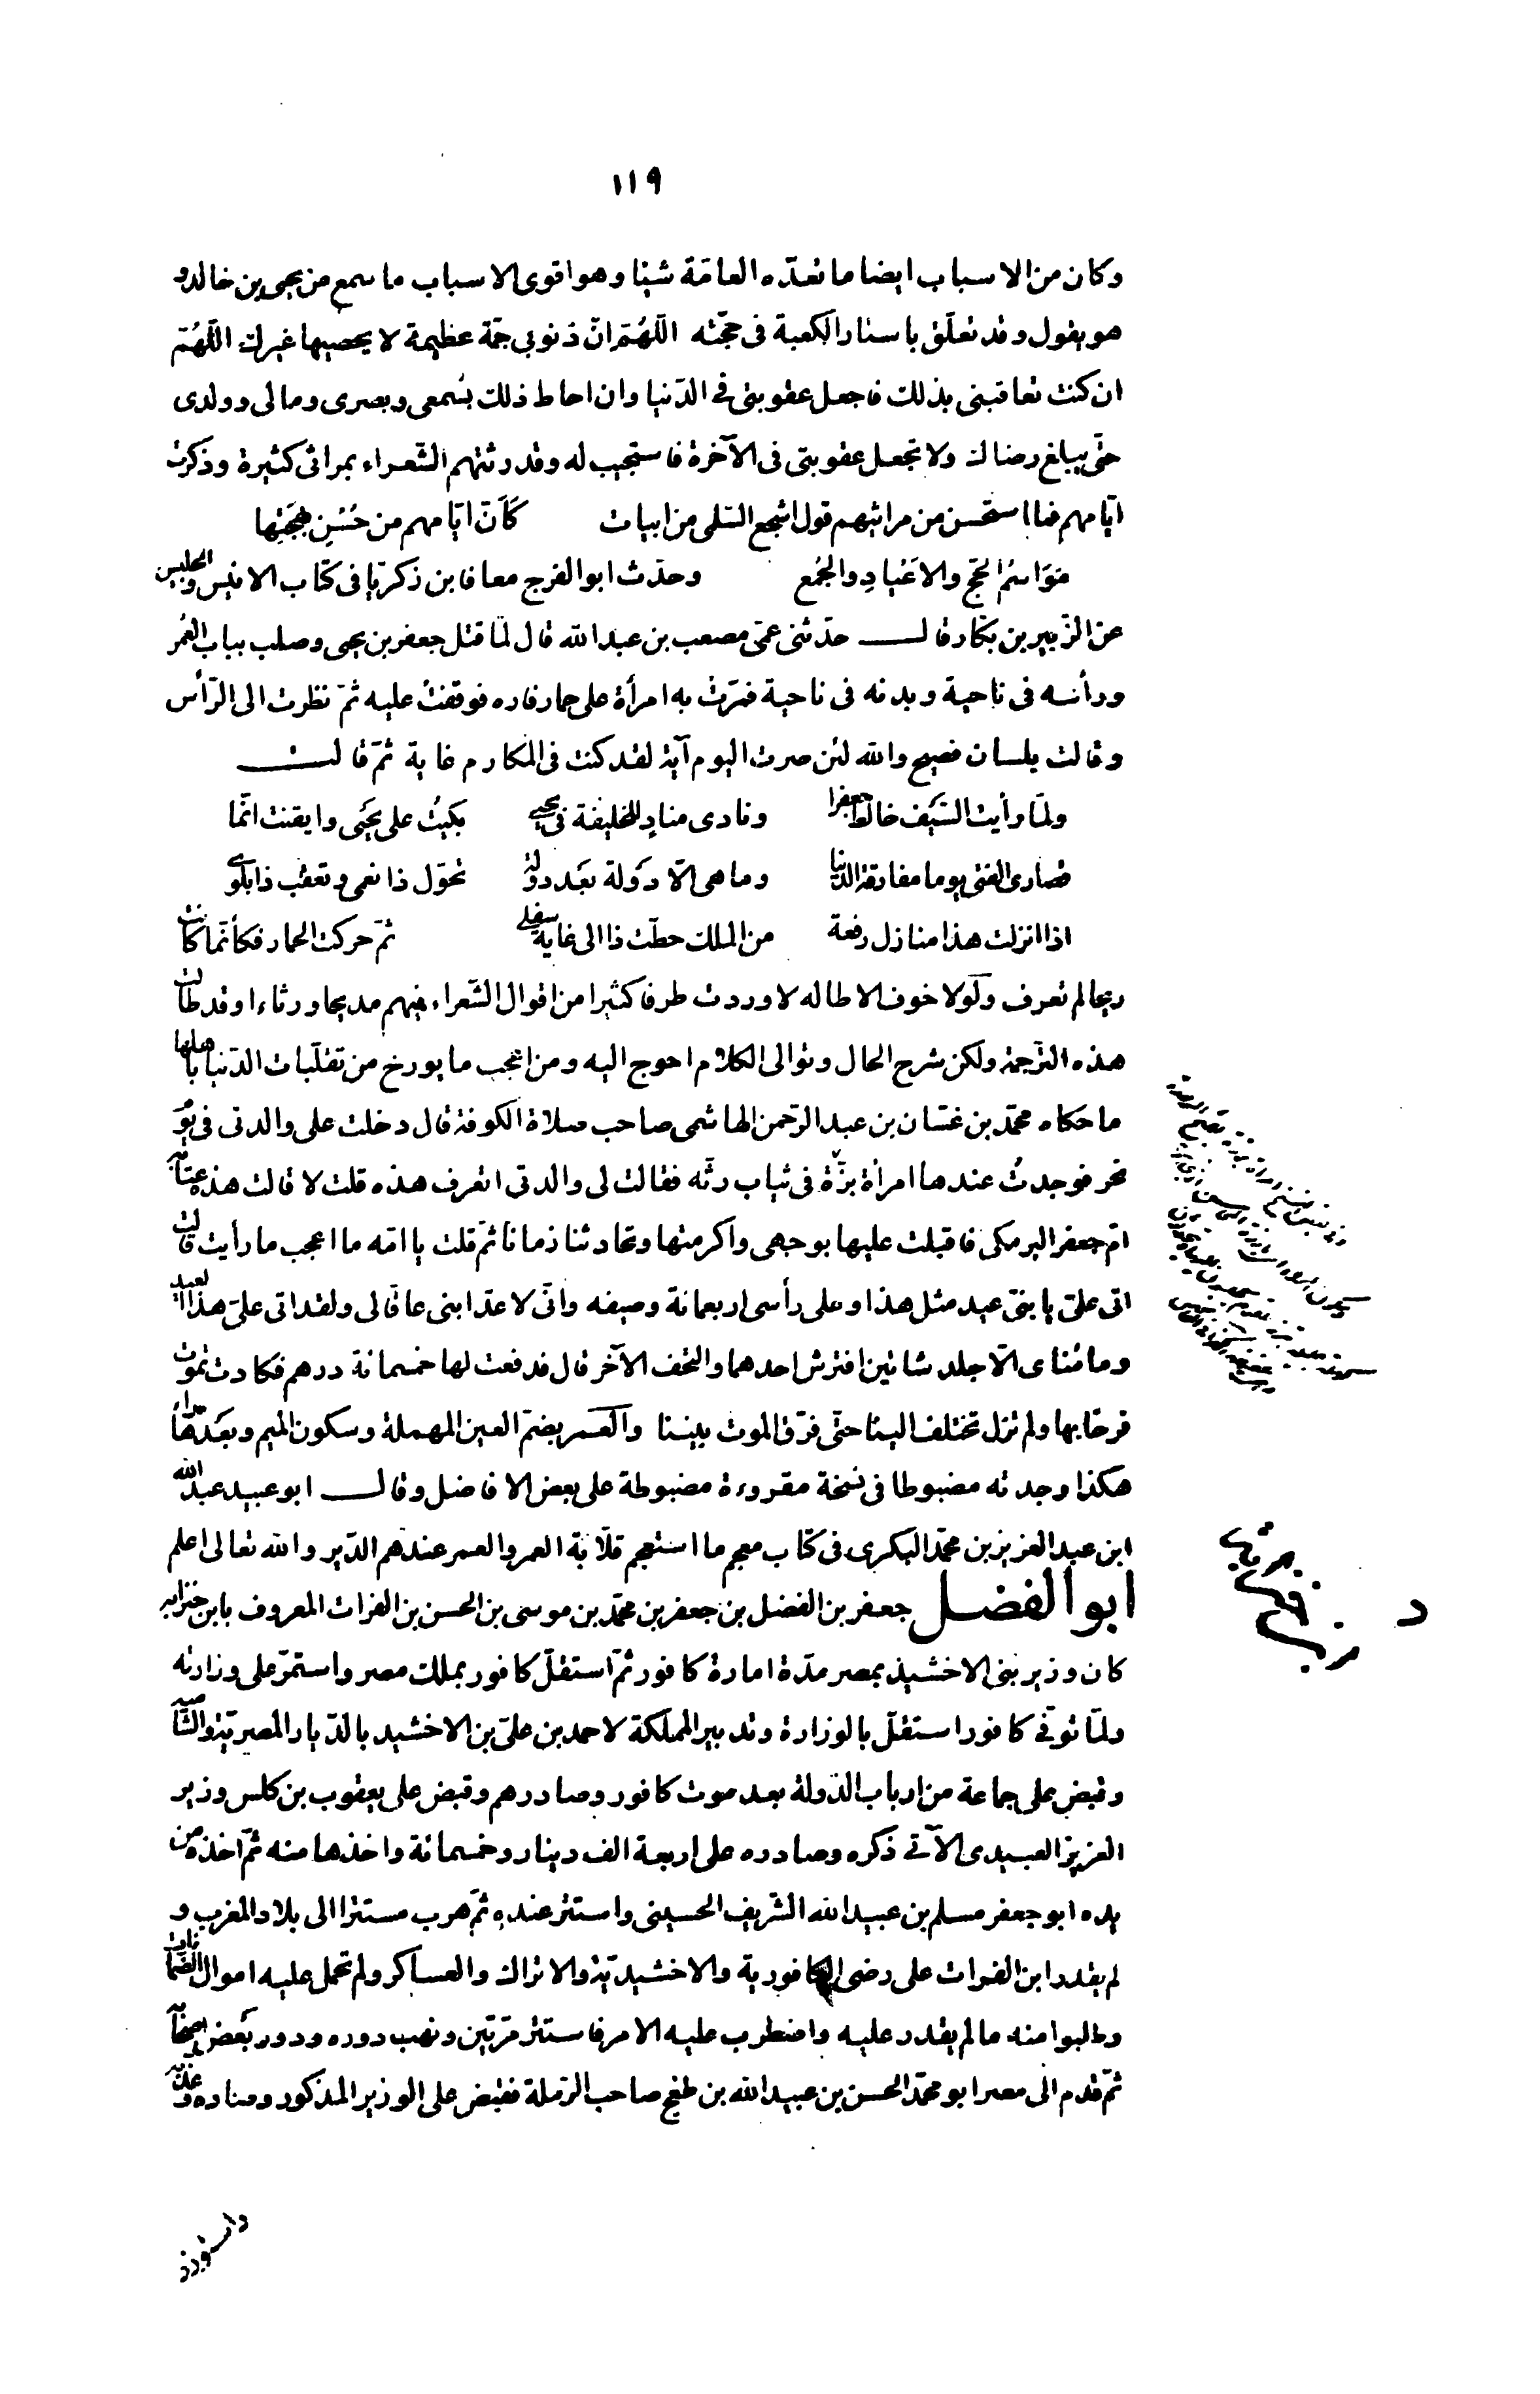 ١١٩
وكان من الاسباب ايضا ما تعدّه العامّة شيئا وهو اقوى الاسباب ما سمع من يحيى بن خالد و
هو يقول وقد تعلّق باستار الكعبة فى حجّته اللّهُمّ انّ ذنوبى جمّة عظيمة لا يحصيها غيرك اللّهُمّ
ان كنت تعاقبنى بذلك فاجعل عقوبتى فى الدّنيا وان احاط ذلك بسمعى وبصرى ومالى وولدى
حتّى يبلغ رضاك ولا تجعل عقوبتى فى الآخرة فاستجيب له وقد رثتهم الشّعراء بمراثى كثيرة وذكرت
ايّامهم فما استحسن من مراثيهم قول اشجع السّلمى من ابيات كَأَنّ ايّامهم من حُسْنِ بَهْجَتِها
مَوَاسِمُ الحَجّ والاَعْيادِ والجُمَع وحدّث ابو الفرج معافا بن زكريّا فى كتاب الانيس والجليس
عن الزّبير بن بكّار قال حدّثنى عمّى مصعب بن عبد الله قال لمّا قتل جعفر بن يحيى وصلب بباب العُمر
ورأسه فى ناحية وبدنه فى ناحية فمرّت به امرأة على حمار فاره فوقفت عليه ثمّ نظرت الى الرّأس
وقالت بلسان فصيح والله لئن صرت اليوم آية لقد كنت فى المكارم غاية ثمّ قالت
ولمّا رأيت السّيف خالط جعفرا ونادى منادٍ للخليفة فى يحيى بكيتُ على يحيَى وايقنت انّما
قصارى الفتى يوما مفارقة الدّنيا وما هى الّا دَولة بعَد دولة تحوّل ذا نعمى وتعقب ذا بلوى
اذا انزلت هذا منازل رفعة من الملك حطّت ذا الى غاية سفلى ثمّ حركت الحمار فكأنّما كانت
ريحا لم تعرف ولولا خوف الاطاله لاوردت طرفا كثيرا من اقوال الشّعراء فيهم مديحا ورثاءا وقد طالت
هذه الترجمة ولكن شرح الحال وتوالى الكلام احوج اليه ومن اعجب ما يورخ من تقلّبات الدّنيا باهلها
ما حكاه محمّد بن غسّان بن عبد الرّحمن الهاشمى صاحب صلاة الكوفة قال دخلت على والدتى فى يوم
نحر فوجدتُ عندها امرأة برزة فى ثياب رثّه فقالت لى والدتى اتعرف هذه قلت لا قالت هذه عتابة
امّ جعفر البرمكى فاقبلت عليها بوجهى واكرمتها وتحادثنا زمانا ثمّ قلت يا امّه ما اعجب ما رأيت قالت
اتى علىّ يا بنىّ عيد مثل هذا وعلى رأسى اربعمائة وصيفه وانّى لاعدّ ابنى عاقّا لى ولقد اتى علىّ هذا العيد
وما مُناى الّا جلد شاتين افترش احدهما والتحف الآخر قال فدفعت لها خمسمائة درهم فكادت تموت
فرحًا بها ولم تزل تختلف الينا حتّى فرّق الموت بيننا والعمر بضمّ العين المهملة وسكون الميم وبعَدها راء
هكذا وجدته مضبوطا فى نسخة مقروءة مضبوطة على بعض الافاضل وقال ابو عبيد عبد الله
ابن عبد العزيز بن محمّد البكرى فى كتاب معجم ما استعجم قلّاية العمر والعمر عندهم الدّير والله تعالى اعلم
ابو الفضل جعفر بن الفضل بن جعفر بن محمّد بن موسى بن الحسن بن الفرات المعروف بابن حنزابه
كان وزير بنى الاخشيذ بمصر مدّة امارة كافور ثمّ استقلّ كافور بملك مصر واستمرّ على وزارته
ولمّا توفّى كافور استقلّ بالوزارة وتدبير المملكة لاحمد بن علىّ بن الاخشيد بالدّيار المصريّة والشّاميه
وقبض على جماعة من ارباب الدّولة بعد موت كافور وصادرهم وقبض على يعقوب بن كلس وزير
العزيز العبيدى الآتى ذكره وصادره على اربعة الف دينار وخمسمائة واخذها منه ثمّ اخذه من
يده ابو جعفر مسلم بن عبيد الله الشّريف الحسينى واستتر عنده ثمّ هرب مستترا الى بلاد المغرب و
لم يقدر ابن الفرات على رضى الكافورية والاخشيديّة والاتراك والعساكر ولم تحمل عليه اموال الضّمانات
وطلبوا منه ما لم يقدر عليه واضطرب عليه الامر فاستتر مرّتين ونهب دوره ودور بعَض اصحابه
ثمّ قدم الى مصر ابو محمّد الحسن بن عبيد الله بن طغج صاحب الرّملة فقبض على الوزير المذكور وصادره وعذّبه